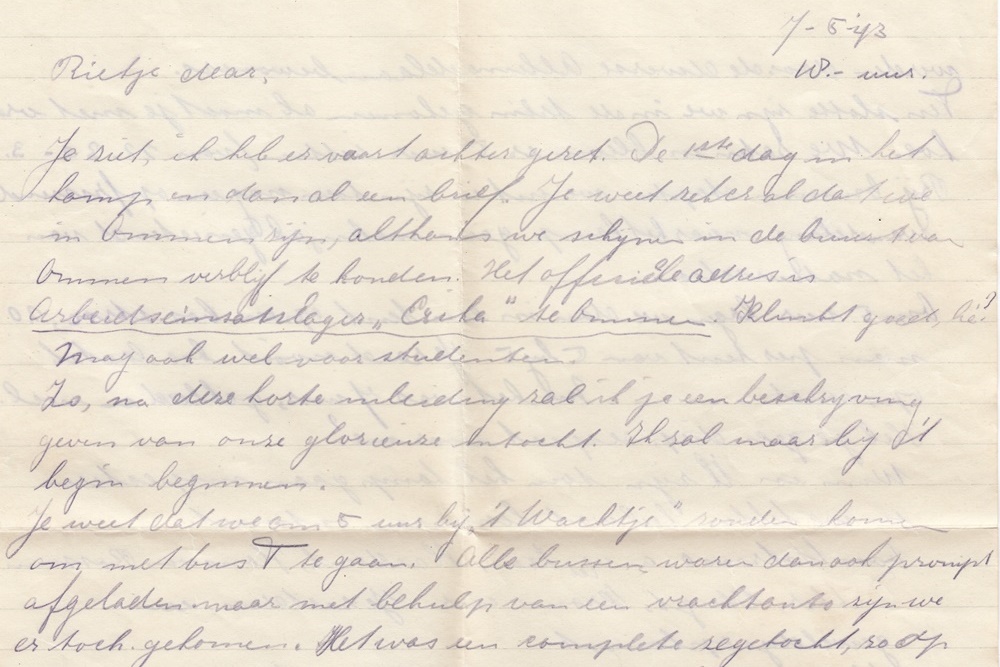 7-5-'43
Rietje dear,
18.- uur.
Je ziet, ik heb er vaart achter gezet. De 1ste dag in het
kamp en dan al een brief. Je weet zeker al dat we
in Ommen zijn, althans we schijnen in de buurt van
Ommen verblijf te houden. Het officiële adres is
Arbeidseinsatzlager „Erika" te Ommen Klinkt goed, hè?
Mag ook wel voor studenten.
Zo, na deze korte inleiding zal ik je een beschryving
geven van onze glorieuze intocht. Ik zal maar bij 't
begin beginnen.
Je weet dat we om 5 uur bij „'t Wachtje" zouden komen
om met bus T te gaan. Alle bussen waren dan ook prompt
afgeladen maar met behulp van een vrachtauto zijn we
er toch gekomen. Het was een complete zegetocht, zo op